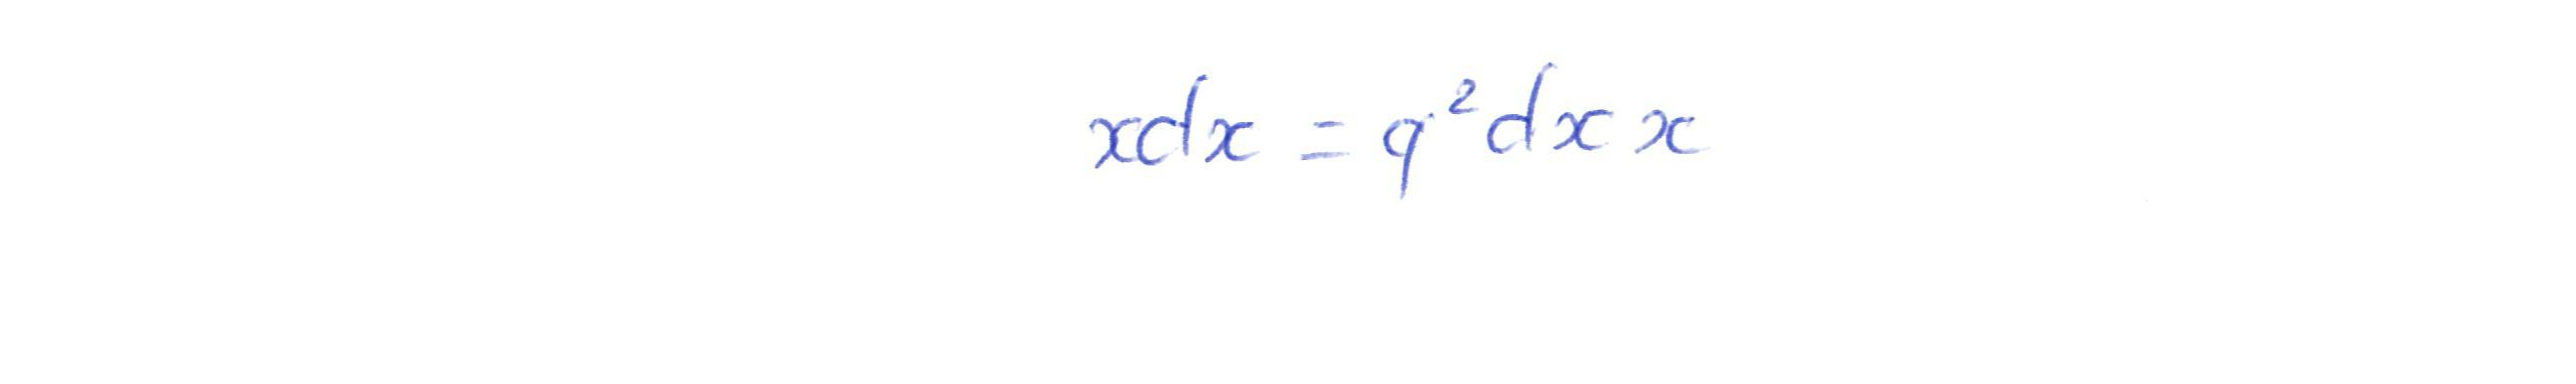 xdx = q²dx x